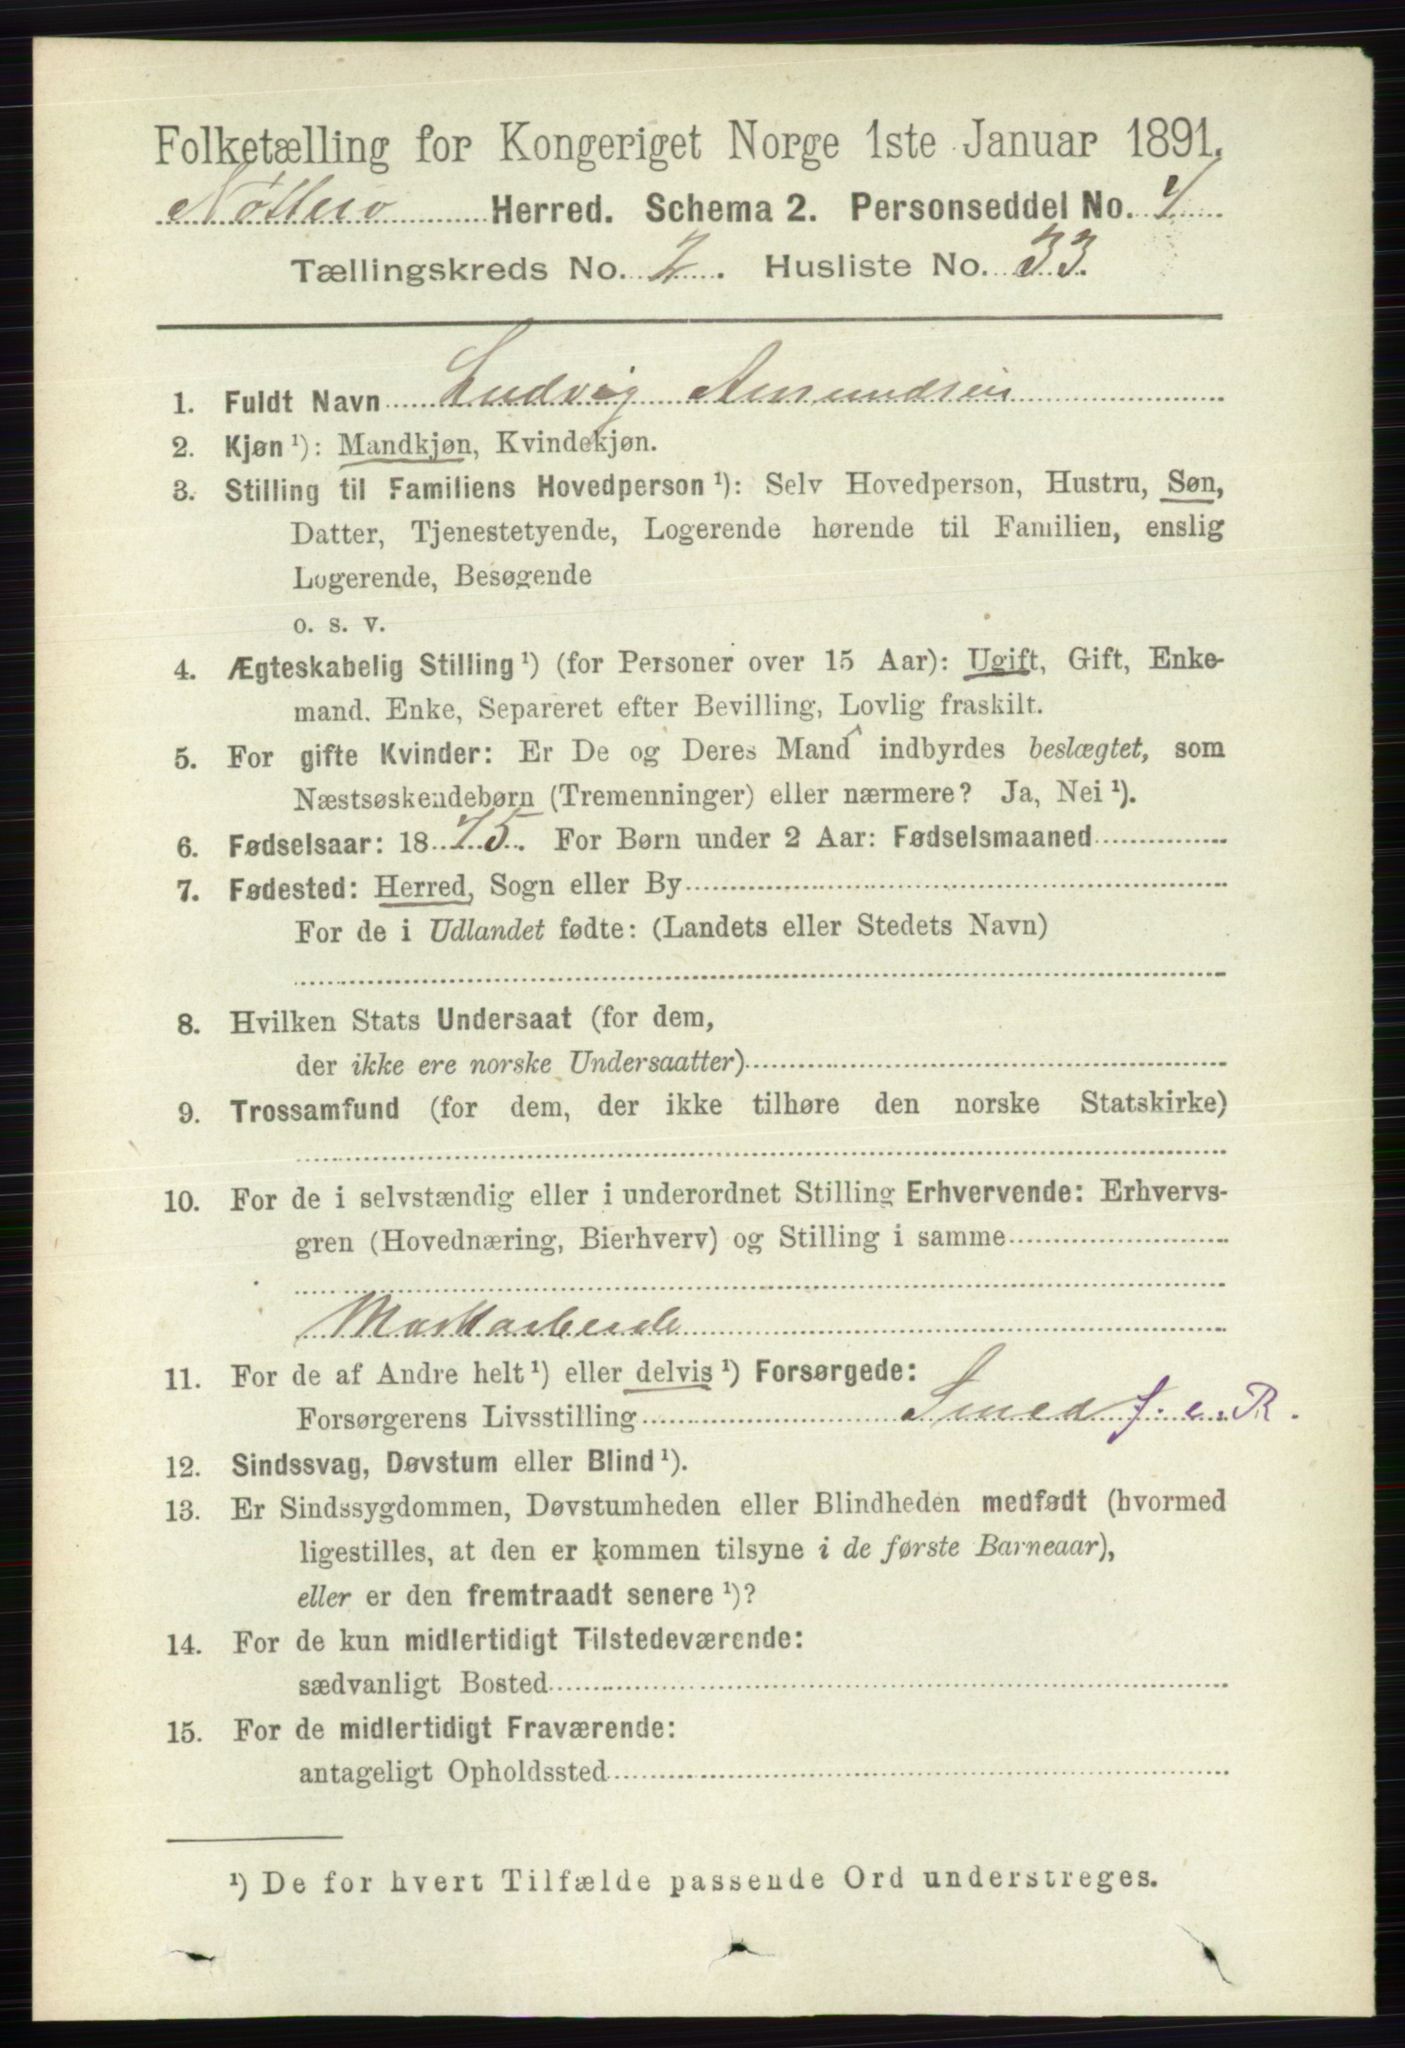 Folketælling for Kongeriget Norge 1ste Januar 1891.
Nøtterø Herred. Schema 2. Personseddel No. 4
Tællingskreds No. 2. Husliste No. 33.
1. Fuldt Navn Ludvig Amundsen
2. Kjøn ¹): Mandkjøn, Kvindekjøn.
3. Stilling til Familiens Hovedperson ¹): Selv Hovedperson, Hustru, Søn,
Datter, Tjenestetyende, Logerende hørende til Familien, enslig
Logerende, Besøgende
o. s. v.
4. Ægteskabelig Stilling ¹) (for Personer over 15 Aar): Ugift, Gift, Enke-
mand, Enke, Separeret efter Bevilling, Lovlig fraskilt.
5. For gifte Kvinder: Er De og Deres Mand indbyrdes beslægtet, som
Næstsøskendebørn (Tremenninger) eller nærmere? Ja, Nei ¹).
6. Fødselsaar: 1875. For Børn under 2 Aar: Fødselsmaaned
7. Fødested: Herred, Sogn eller By
For de i Udlandet fødte: (Landets eller Stedets Navn)
8. Hvilken Stats Undersaat (for dem,
der ikke ere norske Undersaatter)
9. Trossamfund (for dem, der ikke tilhøre den norske Statskirke)
10. For de i selvstændig eller i underordnet Stilling Erhvervende: Erhvervs-
gren (Hovednæring, Bierhverv) og Stilling i samme
Markarbeide
11. For de af Andre helt ¹) eller delvis ¹) Forsørgede:
Forsørgerens Livsstilling Smed f. e. R.
12. Sindssvag, Døvstum eller Blind ¹).
13. Er Sindssygdommen, Døvstumheden eller Blindheden medfødt (hvormed
ligestilles, at den er kommen tilsyne i de første Barneaar),
eller er den fremtraadt senere ¹)?
14. For de kun midlertidigt Tilstedeværende:
sædvanligt Bosted
15. For de midlertidigt Fraværende:
antageligt Opholdssted
¹) De for hvert Tilfælde passende Ord understreges.